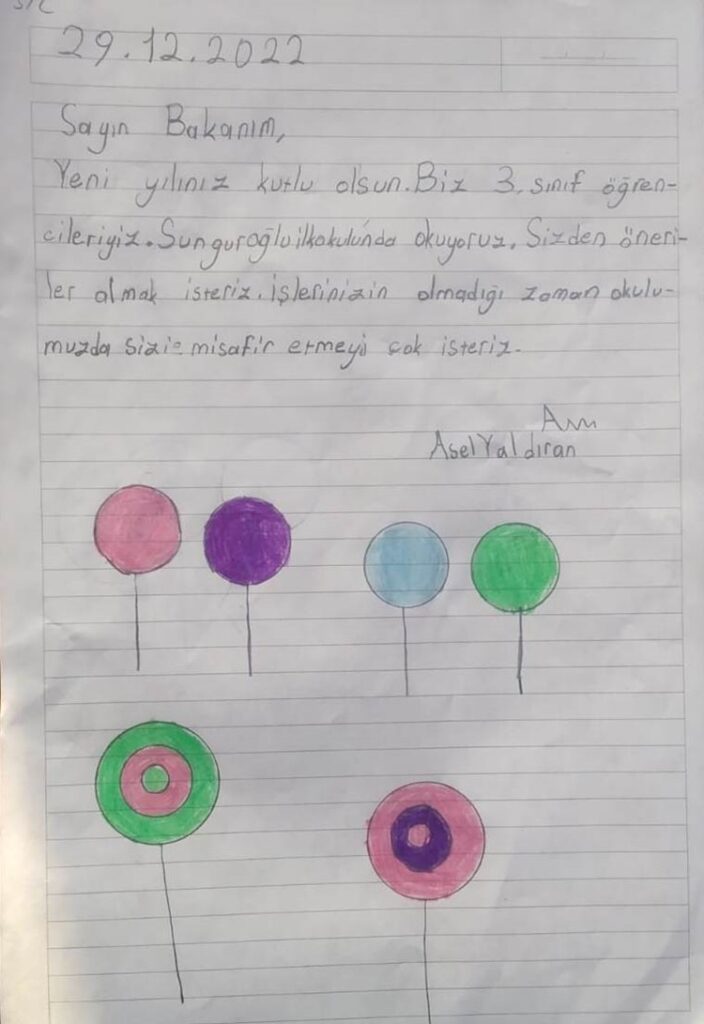 29.12.2022
Sayın Bakanım,
Yeni yılınız kutlu olsun. Biz 3. sınıf öğren-
cileriyiz. Sunguroğlu ilkokulunda okuyoruz. Sizden öneri-
ler almak isteriz. işlerinizin olmadığı zaman okulu-
muzda sizi misafir etmeyi çok isteriz.
Asel Yaldıran